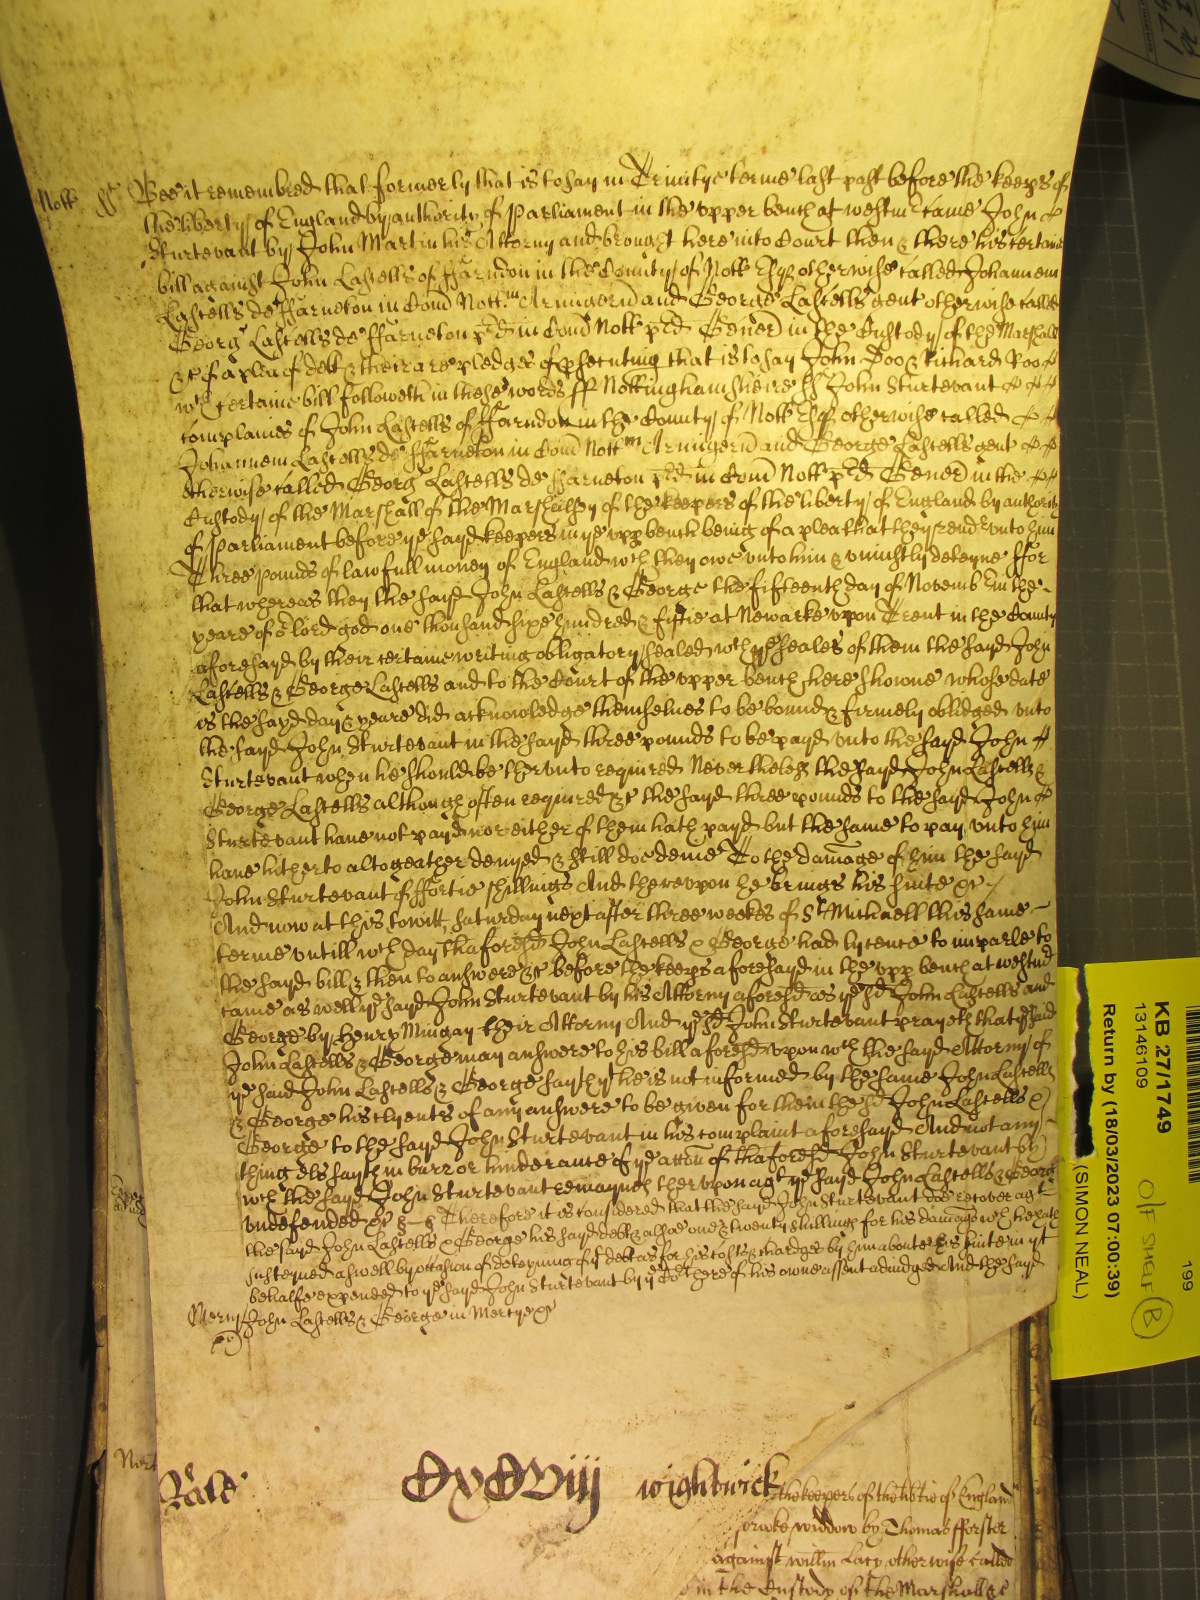 Nott ss Bee it remembred that formerly that is to say in Trinity terme last past before the keeps of
the liberty of England by authority of Parliament in the upper bench at westmr came John
Sturtevant by John Martin his Attorny and brought here into Court then & there his certaine
bill against John Lascells of ffarndon in the County of Nott Esqr otherwise called Johannem
Lascells de ffarneton in Com Nottm Armigerm and George Lascells gent otherwise called
Georg Lascells de ffarneton pred in Com Nott pred Generd in the Custody of the Marshall
&c of a plea of debt & their are pledges of psecuting that is to say John Doo & Richard Roo
wch certaine bill followeth in these words ff Nottinghamsheire ss John Sturtevant
complaines of John Lascells of ffarndon in the County of Nott Esqr otherwise called
Johannem Lascells de ffarneton in Com Nottm Armigerm and George Lascells gent
otherwise called Georg Lascells de ffarneton pred in Com Nott pred Generd in the
Custody of the Marshall of the Marshalsey of the keepers of the liberty of England by authority
of Parliament before ye sayd keepers in ye upp bench being of a plea that they rend unto him
Three pounds of lawfull money of England wch they owe unto him & uniustly deteyne ffor
that whereas they the sayd John Lascells & George the fifteenth day of Novemb in the
yeare of or lord god one thousand sixe hundred & fiftie at Newarke upon Trent in the County
aforesayd by their certaine writing obligatory sealed wth ye seales of them the sayd John
Lascells & George Lascells and to the Court of the upper bench here showne whose date
is the sayd day & yeare did acknowledge themselves to be bound & firmely obliged unto
the sayd John Sturtevant in the sayd three pounds to be payd unto the sayd John
Sturtevant when he should be therunto required Neverthelesse the sayd John Lascells &
George Lascells although often required &c the sayd three pounds to the sayd John
Sturtevant have not payd nor either of them hath payd but the same to pay unto him
have hitherto altogeather denyed & still doe denie To the damage of him the sayd
John Sturtevant of ffortie shillings And thereupon he brings his suite &c
And now at this to witt saturday next after three weekes of St Michaell this same
terme untill wch day thaforesd John Lascells & George had lycence to imparle to
the sayd bill & then to answere &c before the keeps aforesayd in the upp bench at westm
came as well ye sayd John Sturtevant by his Attorny aforesd as ye sd John Lascells and
George by Henry Mingay their Attorny And ye sd John Sturtevant prayeth that ye said
John Lascells & George may answere to his bill aforesd upon wch the sayd Attorny of
ye said John Lascells & George sayth yt he is not informed by the same John Lascells
& George his clyents of any answere to be given for them the sd John Lascells &
George to the sayd John Sturtevant in his complaint aforesayd And not any
thing els sayth in barr or hinderance of ye accon of thaforesd John Sturtevant by
wch the sayd John Sturtevant remayneth therupon agt ye sayd John Lascells & Georg
undefended &c Therefore it is considered that the sayd John Sturtevant doe recover agt
the sayd John Lascells & George his sayd debt & alsoe one & twenty shillings for his damages wch he hath
susteyned aswell by occasion of deteyning of ye debt as for his costs & chardges by him aboute his suite in yt
behalfe expended to ye sayd John Sturtevant by ye Cort here of his owne assent adiudged And the sayd
Mercy John Lascells & George in Mercye &c
Rate
wightwick
the keepers of the libtie of England
widdow by Thomas fforster
against willm Lacy otherwise called
in the Custody of the Marshall &c
KB 27/1749
13146109
Return by (18/03/2023 07:00:39)
(SIMON NEAL)
199
O/F SHELF B